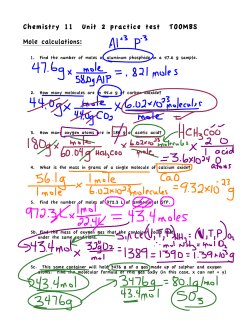 Chemistry 11 Unit 2 practice test TOOMBS
Al⁺³ P⁻³
Mole calculations:
1. Find the number of moles of aluminum phosphide in a 47.6 g sample.
47.6g x mole / 58.0g AlP = .821 moles
2. How many molecules are in 44.0 g of carbon dioxide?
44.0g x mole / 44.0g CO₂ x 6.02x10²³ molecules / mole
3. How many oxygen atoms are in 180 g of acetic acid?
CH₃COOH
180g x mole / 60.0g x 6.02x10²³ molecules / mole x 2 O / 1 acid
= 3.6x10²⁴ O atoms
4. What is the mass in grams of a single molecule of calcium oxide?
CaO
56.1g / 1mole x 1mole / 6.02x10²³ molecules = 9.32x10⁻²³ g
5. Find the number of moles of 972.3 L of
at STP.
972.3L x 1mol / 22.4L = 43.4 moles
5b. Find the mass of oxygen gas that the container
under the same conditions.
43.4mol x 32.0g / mol = 1389 = 1390 = 1.39x10³g
5c. This same container will hold 3476 g of a gas made up of sulphur and oxygen
atoms. Find the molecular formula of this gas
43.4mol
3476g
3476g / 43.4mol = 80.1g/mol
SO₃